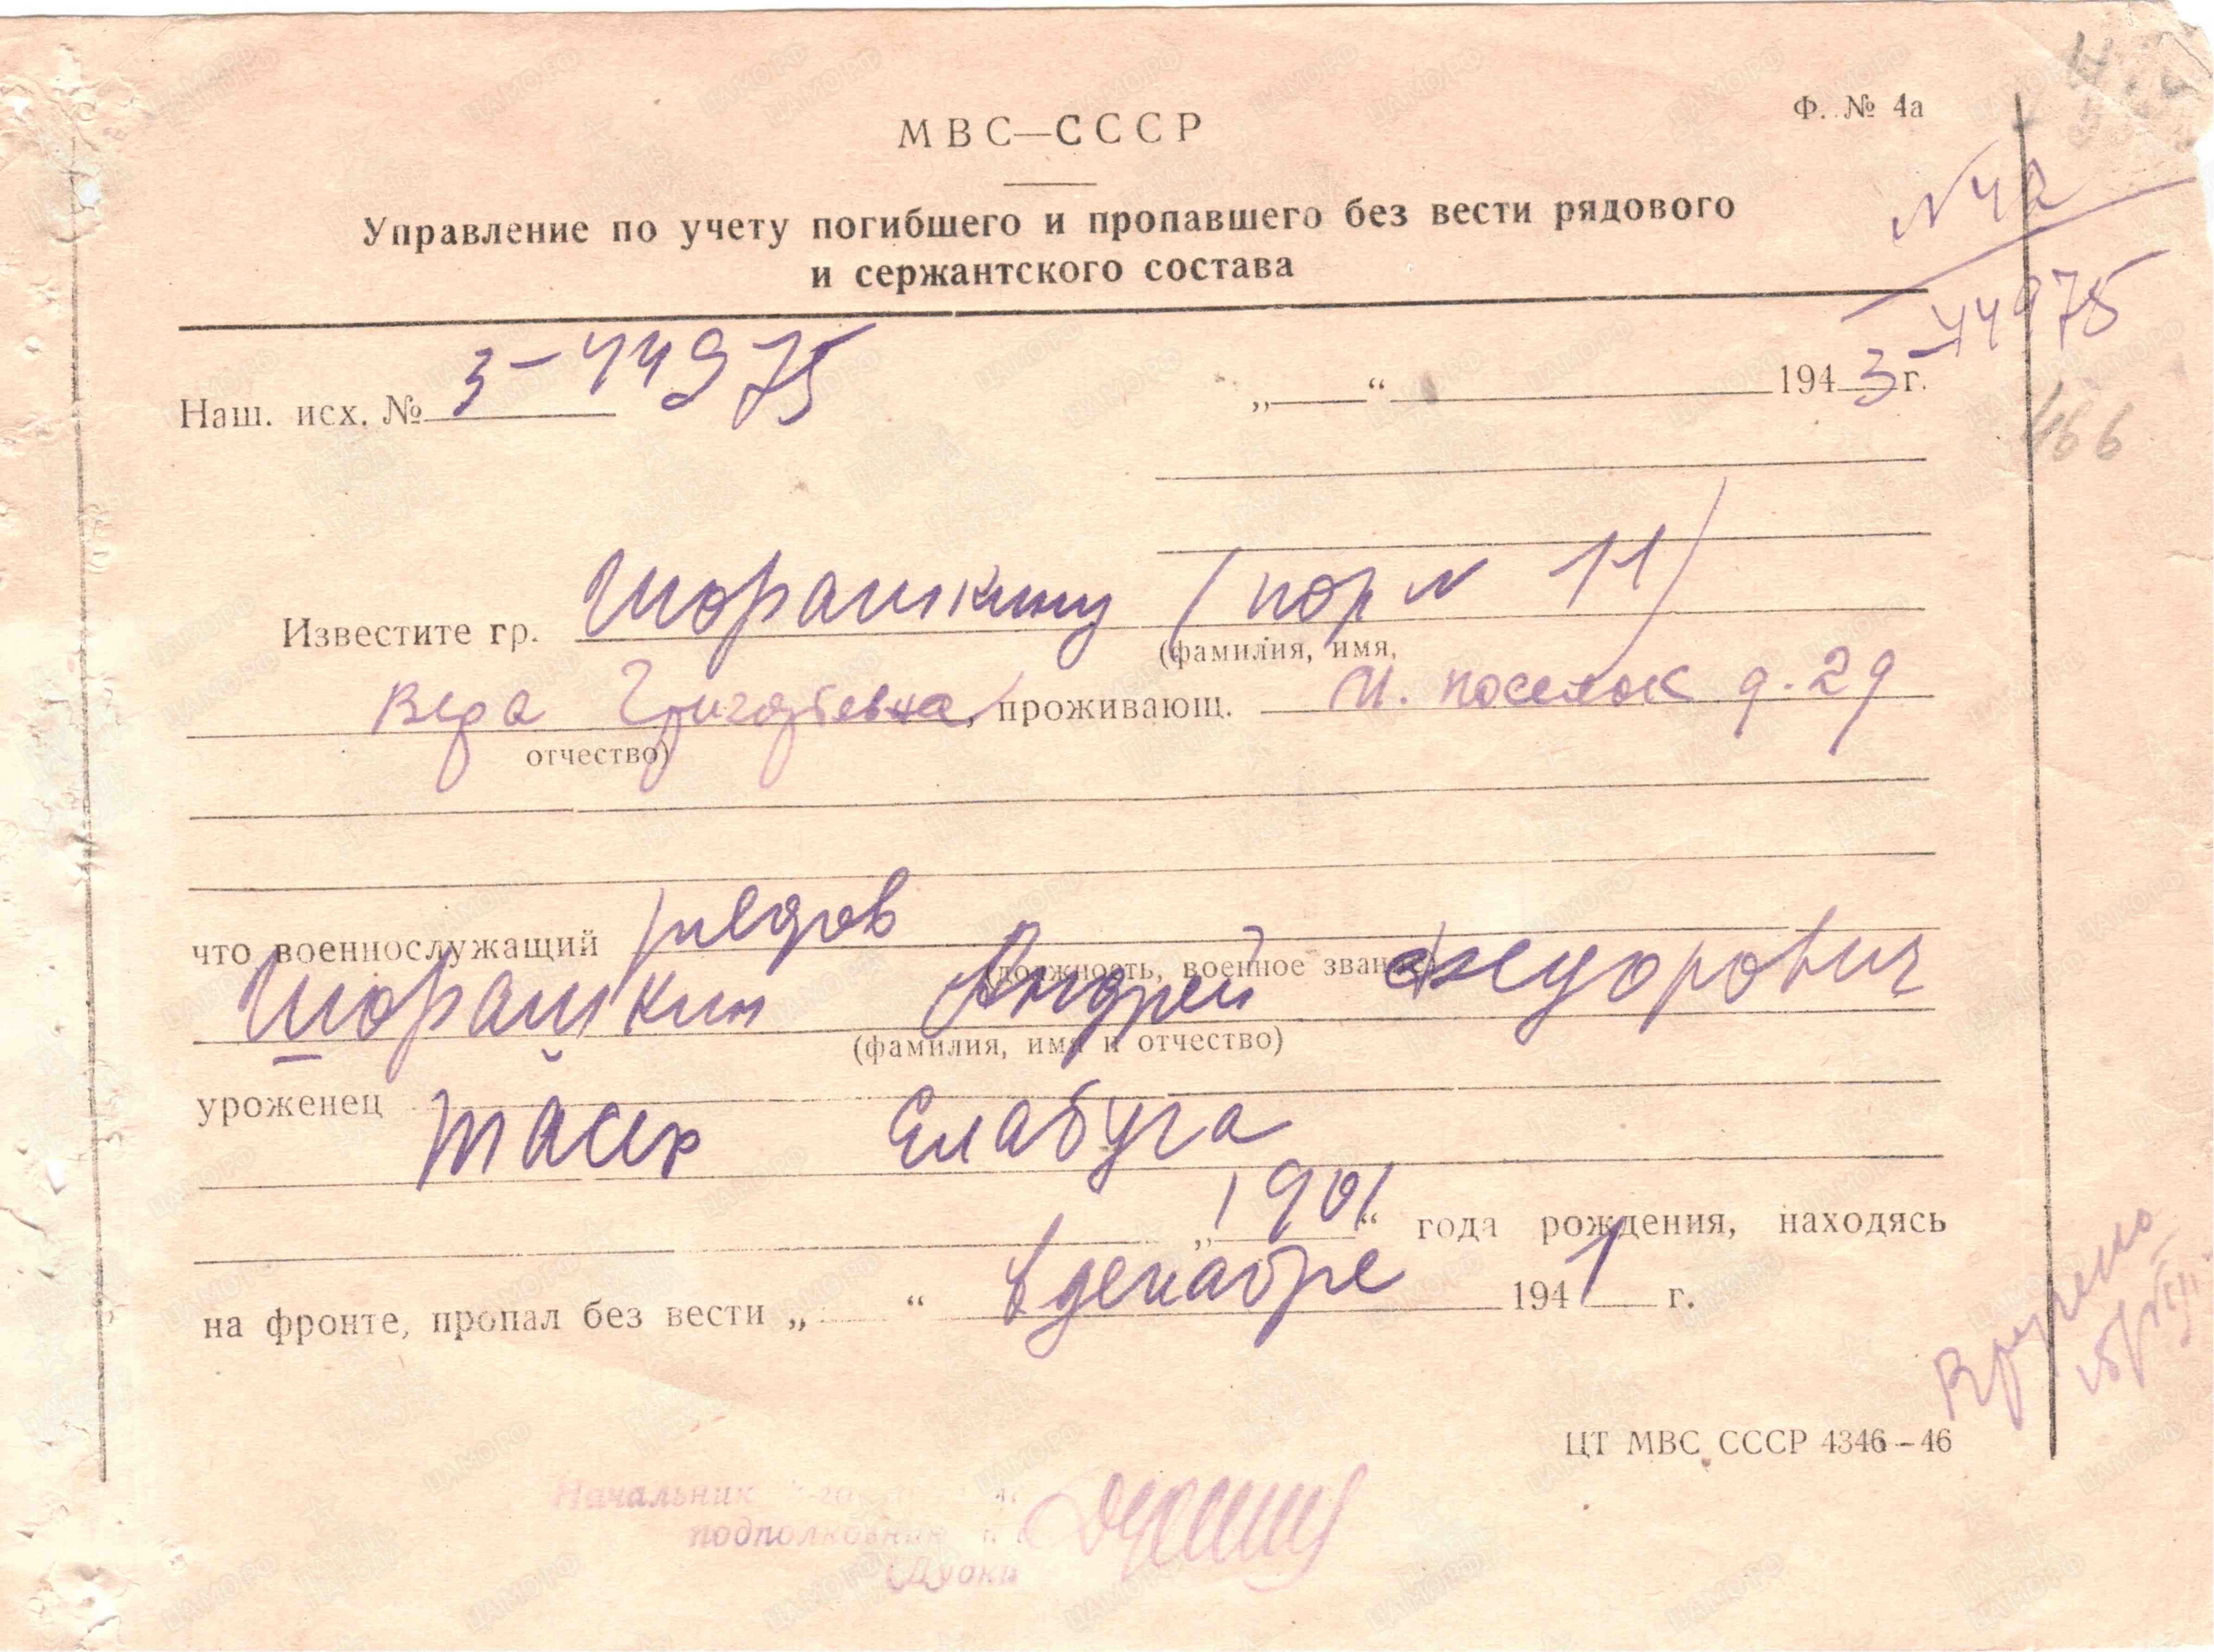 Ф. № 4а
МВС—СССР
Управление по учету погибшего и пропавшего без вести рядового
и сержантского состава
N 42
3-44975
Наш. исх. № 3-44975 „ “ 1943 г.
466
Известите гр. Шорашкину (пор N 11)
(фамилия, имя,
Вера Григорьевна, проживающ. И. поселок д. 29
отчество)
что военнослужащий рядов
(должность, военное звание)
Шорашкин Андрей Федорович
(фамилия, имя и отчество)
уроженец
тасср Елабуга
„1901“ года рождения, находясь
на фронте, пропал без вести „ “ в декабре 1941 г.
Вручено
ЦТ МВС СССР 4346-46
Начальник
подполковник